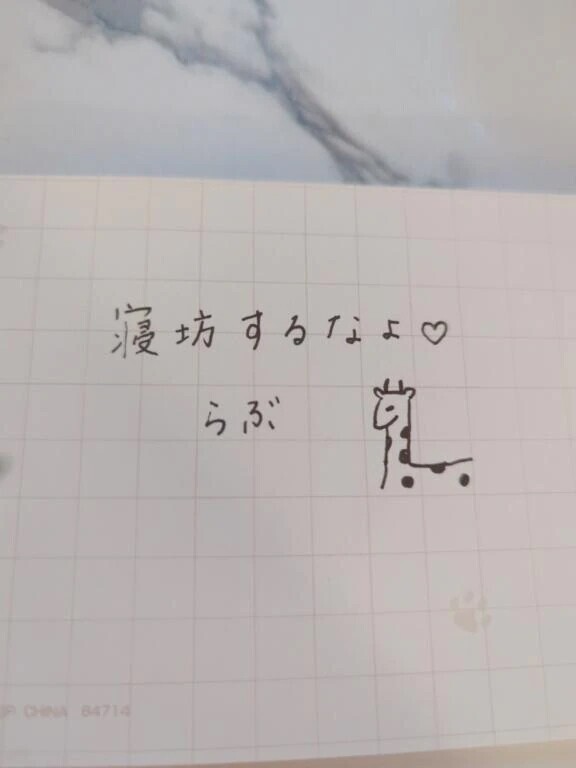 寝坊するなよ♡
らぶ
CHINA 84714